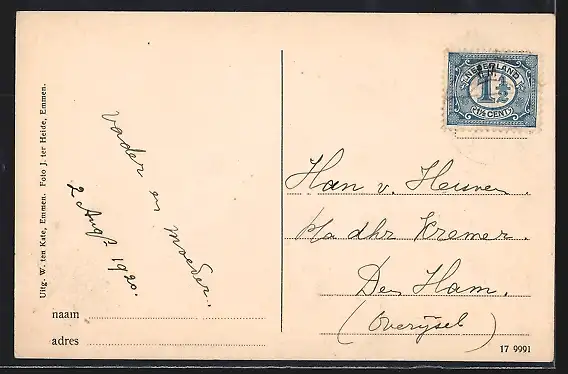 Uitg. W. ten Kate, Emmen. Foto J. ter Heide, Emmen.
vader en moeder.
2 Aug. 1920.
naam
adres
NEDERLAND
1½
1½ CENT
Han v. Heuven.
p/a dhr Kremer.
Den Ham.
(Overijsel)
17 9991